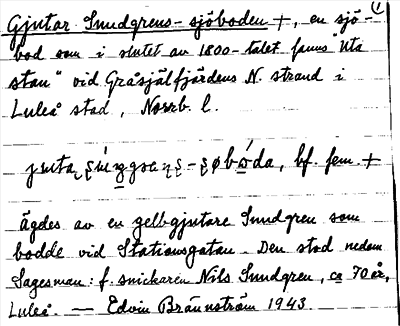 Gjutar Smedgrens-sjöboden +, en sjö- 1
bod som i slutet av 1800-talet fanns "uta
stan" vid Gråsjälfjärdens N. strand i
Luleå stad, Norrb. l.
bf. fem. +
ägdes av en gelbgjutare Smedgren som
bodde vid Stationsgatan. Den stod nedom
Sagesman: f. snickaren Nils Smedgren, ca 70 år,
Luleå. — Edvin Brännström 1943.